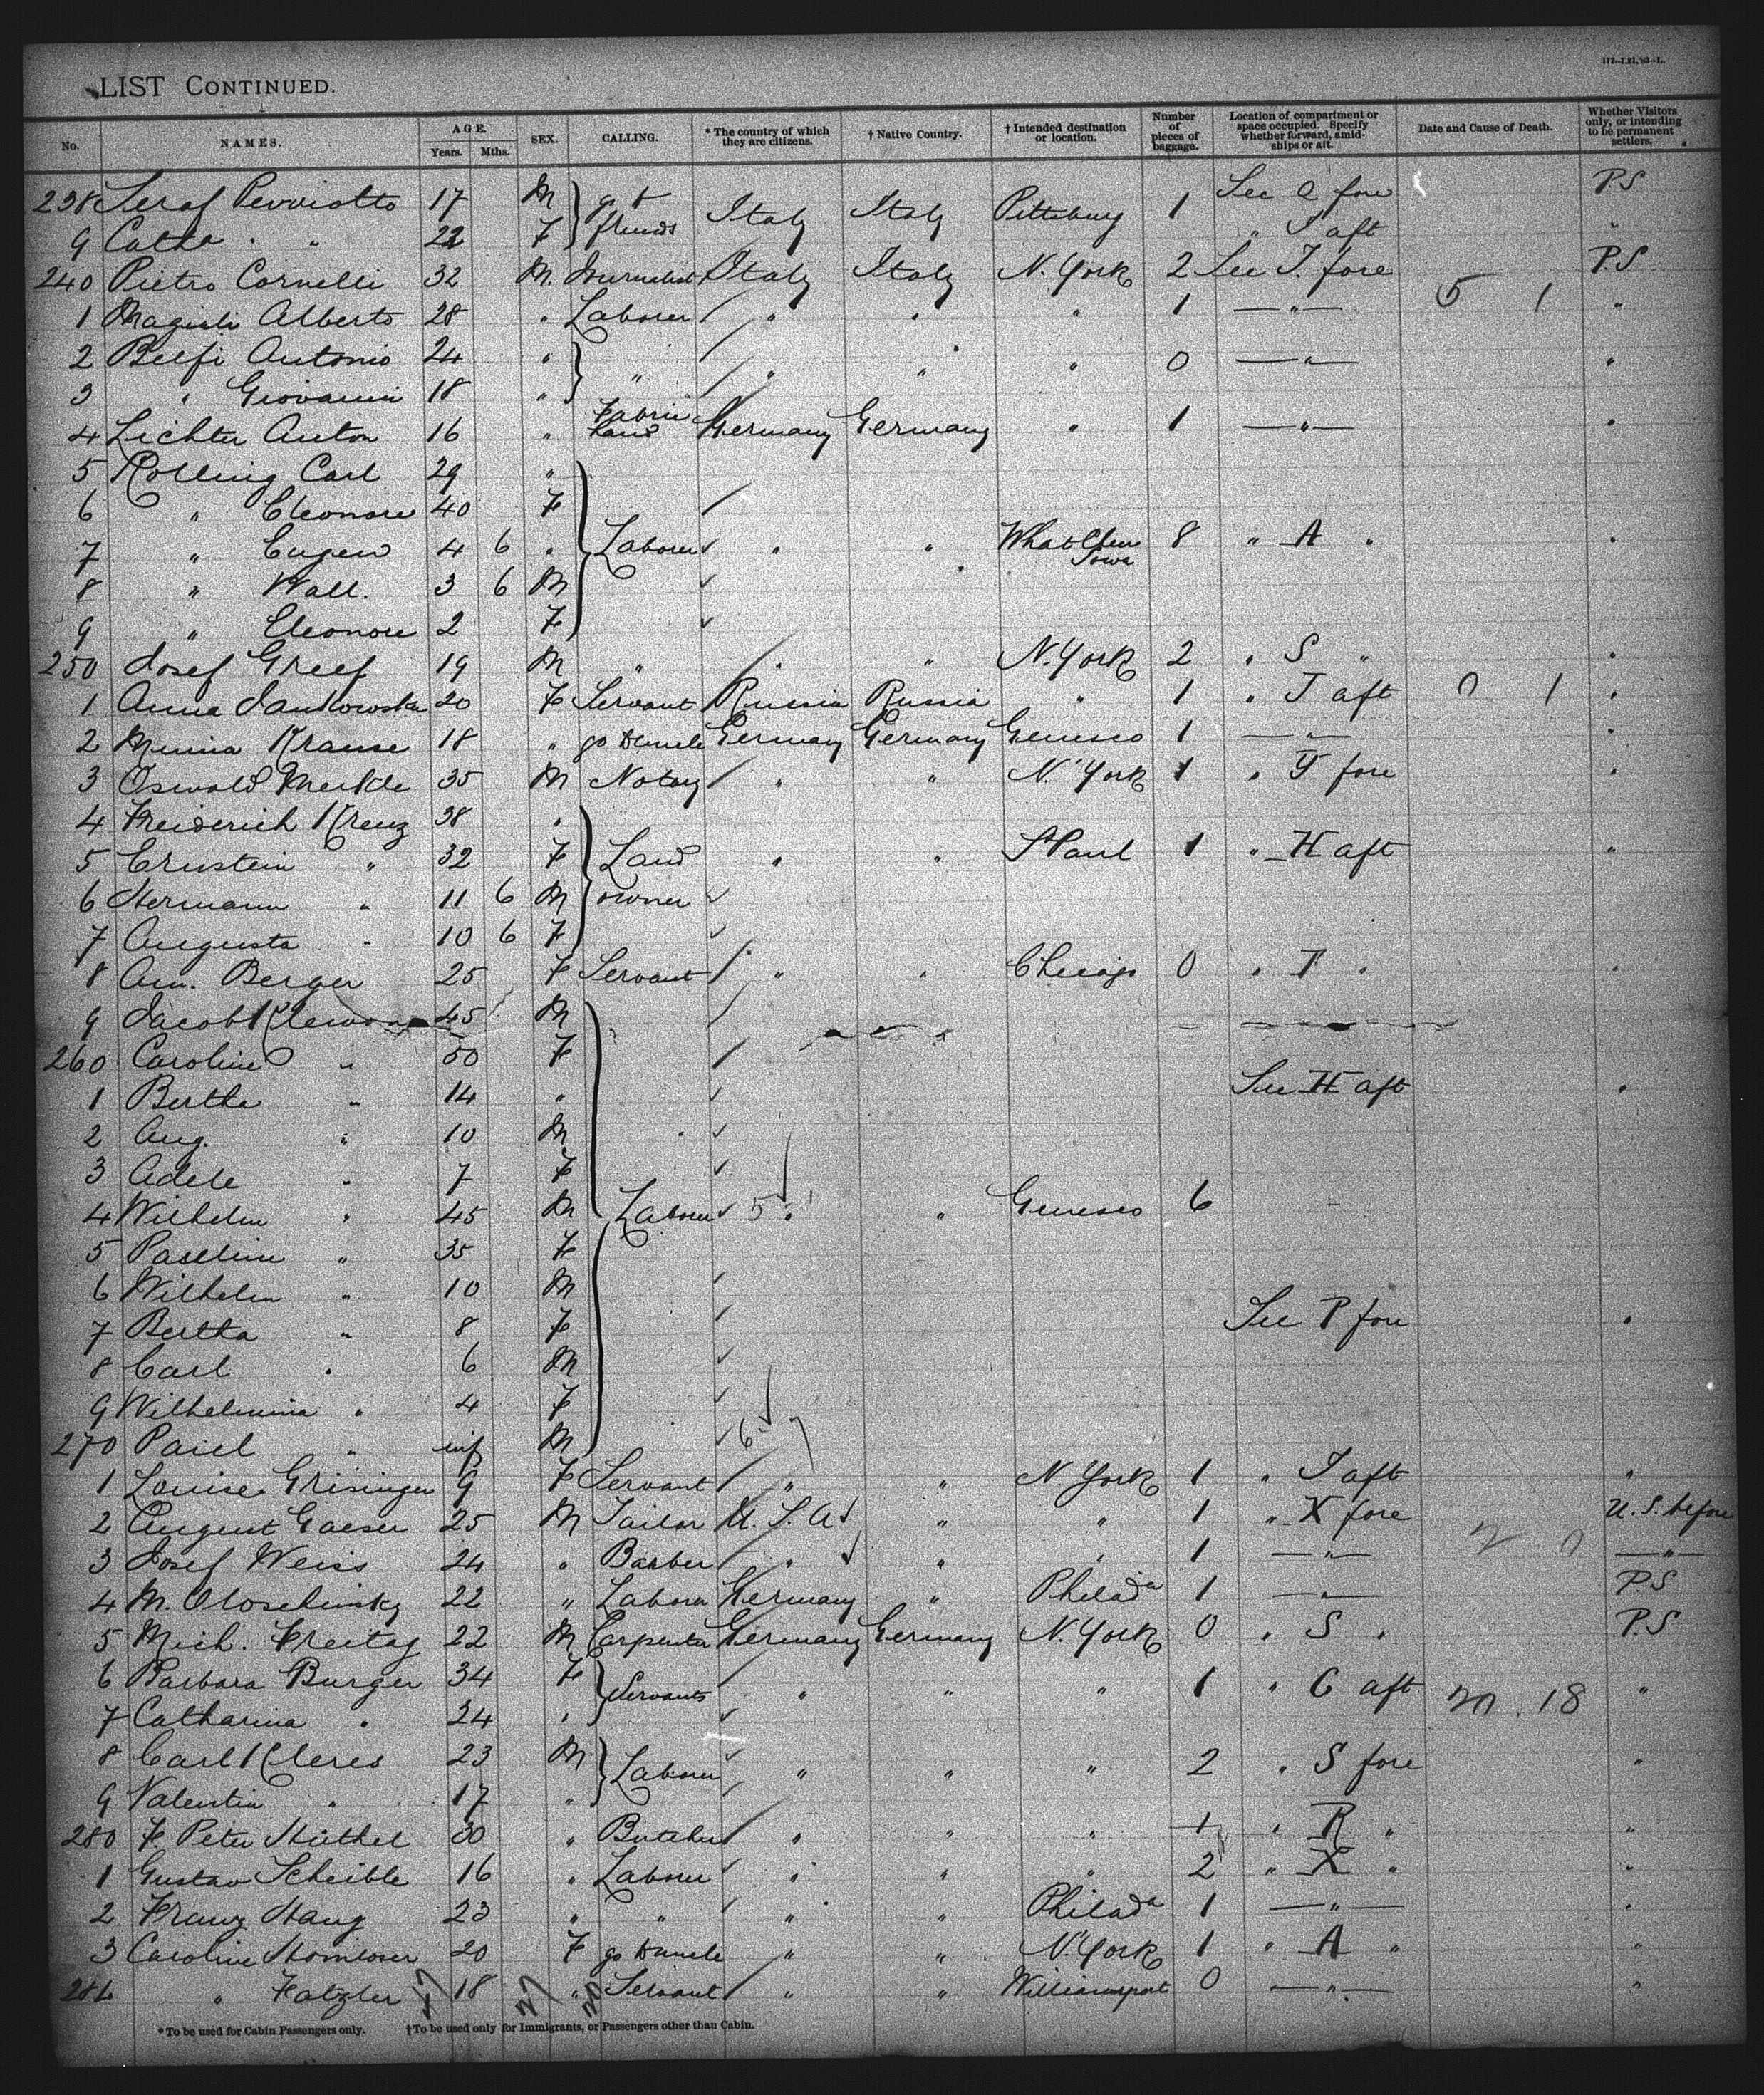 LIST CONTINUED.
117—1.21.'93—L.
No. NAMES. AGE. Years. Mths. SEX. CALLING. * The country of which they are citizens. † Native Country. † Intended destination or location. Number of pieces of baggage. Location of compartment or space occupied. Specify whether forward, amidships or aft. Date and Cause of Death. Whether Visitors only, or intending to be permanent settlers.
238 Seraf 17 M go t friends Italy Italy Pittsburg 1 See Q fore P.S
9 Catha " 22 F " T aft "
240 Pietro Cornelli 32 M. Journalist Italy Italy N. York 2 See T. fore P.S
1 Magisti Alberto 28 " Laborer " " " 1 —"— 5 1 "
2 Belfi Antonio 24 " " " " " 0 —"— "
3 " Giovanni 18 "
4 Lichter Anton 16 " Germany Germany " 1 —"— "
5 Rolling Carl 29 "
6 " Eleonore 40 F
7 " Eugen 4 6 " Laborer " " What Cheer Iowa 8 " A " "
8 " Wall. 3 6 M
9 " Eleonore 2 F
250 Josef Greef 19 M " " " N. York 2 " S " "
1 Anna Jankowska 20 F Servant Russia Russia " 1 " T aft 0 1 "
2 Minna Krause 18 " go t uncle Germany Germany Geneseo 1 —"— "
3 Oswald Merkle 35 M Notary " " N. York 1 " T fore "
4 Freiderich Krenz 38 "
5 Ernstein " 32 F Land owner " " St Paul 1 " H aft "
6 Hermann " 11 6 M
7 Augusta " 10 6 F
8 Am. Berger 25 F Servant " " Chicago 0 " T " "
9 Jacob 45 M
260 Caroline " 50 F
1 Bertha " 14 " See H aft "
2 Aug. " 10 M
3 Adele " 7 F
4 Wilhelm " 45 M Laborer 5 " " Geneseo 6
5 " 35 F
6 Wilhelm " 10 M
7 Bertha " 8 F See P fore "
8 Carl " 6 M
9 Wilhelmina " 4 F
270 " inf M 6
1 Louise Grisinger 9 F Servant " " N York 1 " T aft "
2 August Gaeser 25 M Tailor U. S. A " " 1 " X fore 2 0 U. S. before
3 Josef Weiss 24 " Barber " " " 1 —"— —"—
4 M. 22 " Laborer Germany " Philada 1 —"— P.S
5 Mich. Freitag 22 M Carpenter Germany Germany N. York 0 " S " P.S
6 Barbara Burger 34 F Servants " " " 1 " C aft 20 . 18 "
7 Catharina " 24 "
8 Carl Kleres 23 M Laborer " " " 2 " S fore "
9 Valentin " 17 "
280 F. Peter 30 " Butcher " " " 1 " R " "
1 Gustav Scheible 16 " Laborer " " " 2 " X " "
2 Franz Haug 23 " " " " Philada 1 —"— "
3 Caroline 20 F go t uncle " " N. York 1 " A " "
284 " Fatzler 18 " Servant " " Williamsport 0 —"— "
* To be used for Cabin Passengers only. † To be used only for Immigrants, or Passengers other than Cabin.